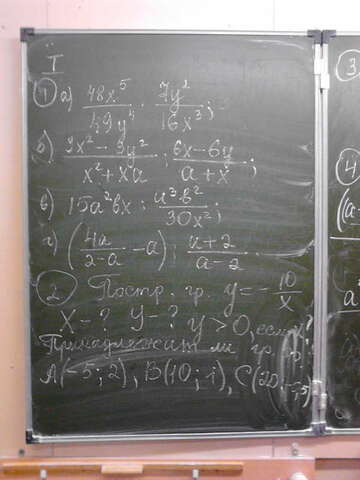 I
① а) 48x⁵/49y⁴ · 7y²/16x³;
б) 9x² - 9y²/x² + xa : 6x - 6y/a + x;
в) 15a²bx : a³b²/30x²;
г) (4a/2-a - a) : a+2/a-2
② Постр. гр. y = -10/x
X - ? y - ? y > 0, если
Принадлежит ли гр.
A(-5; 2), B(10; 1), C(20;
③
④